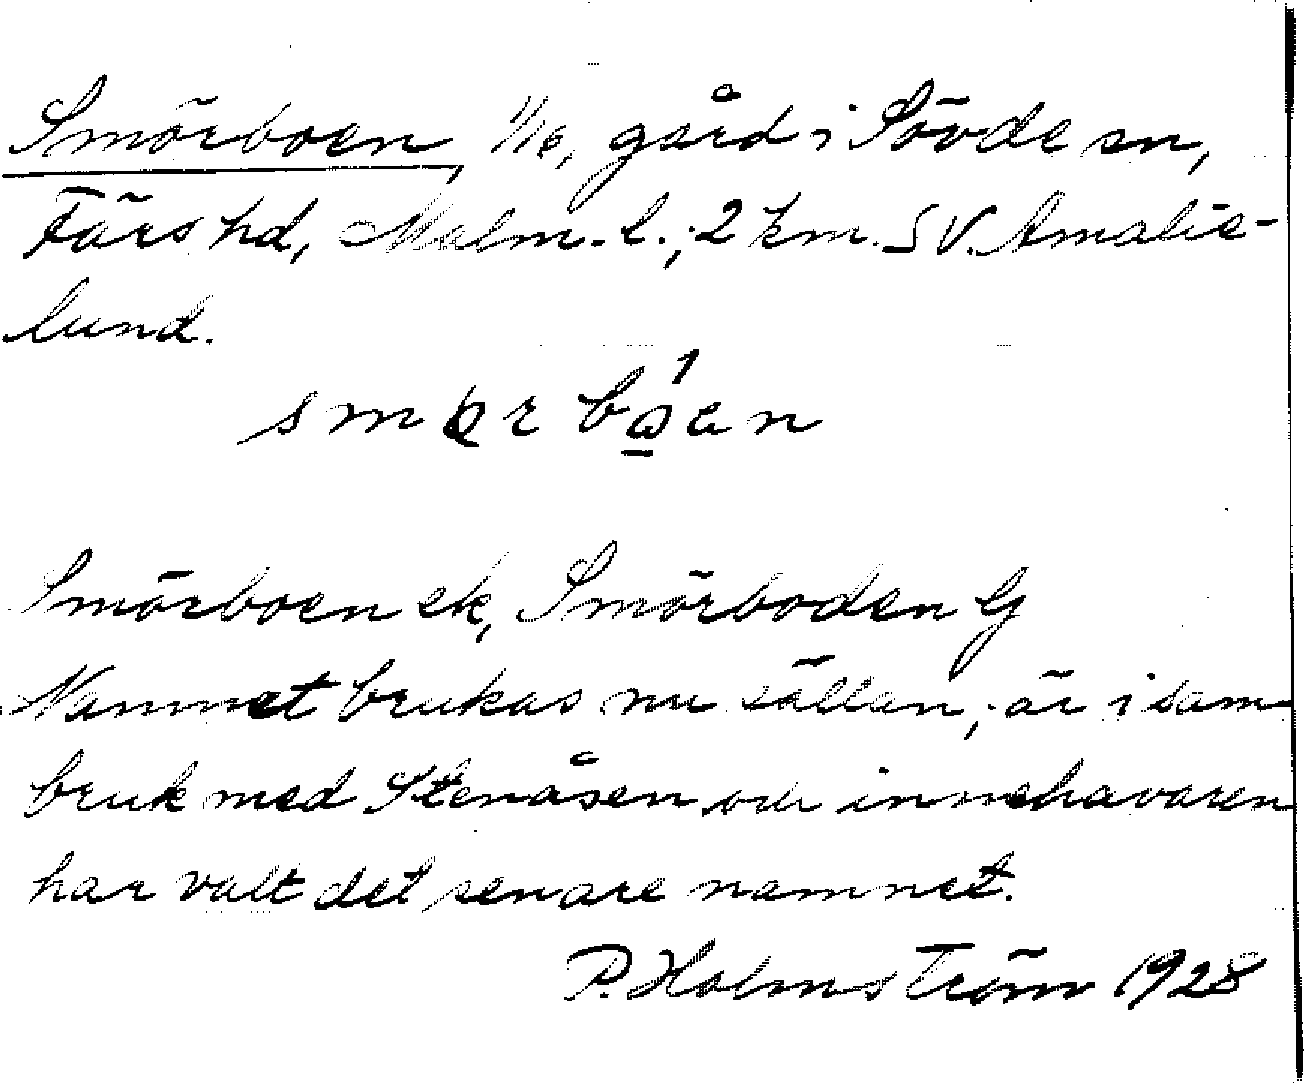 Smörboen, 1/16, gård i Sövde sn,
Färs hd, Malm. l.; 2 km. SV. Amalie-
lund.
Smörboen ek, Smörboden G
Namnet brukas nu sällan; är i sam-
bruk med Stenåsen och innehavaren
har valt det senare namnet.
P. Holmström 1928